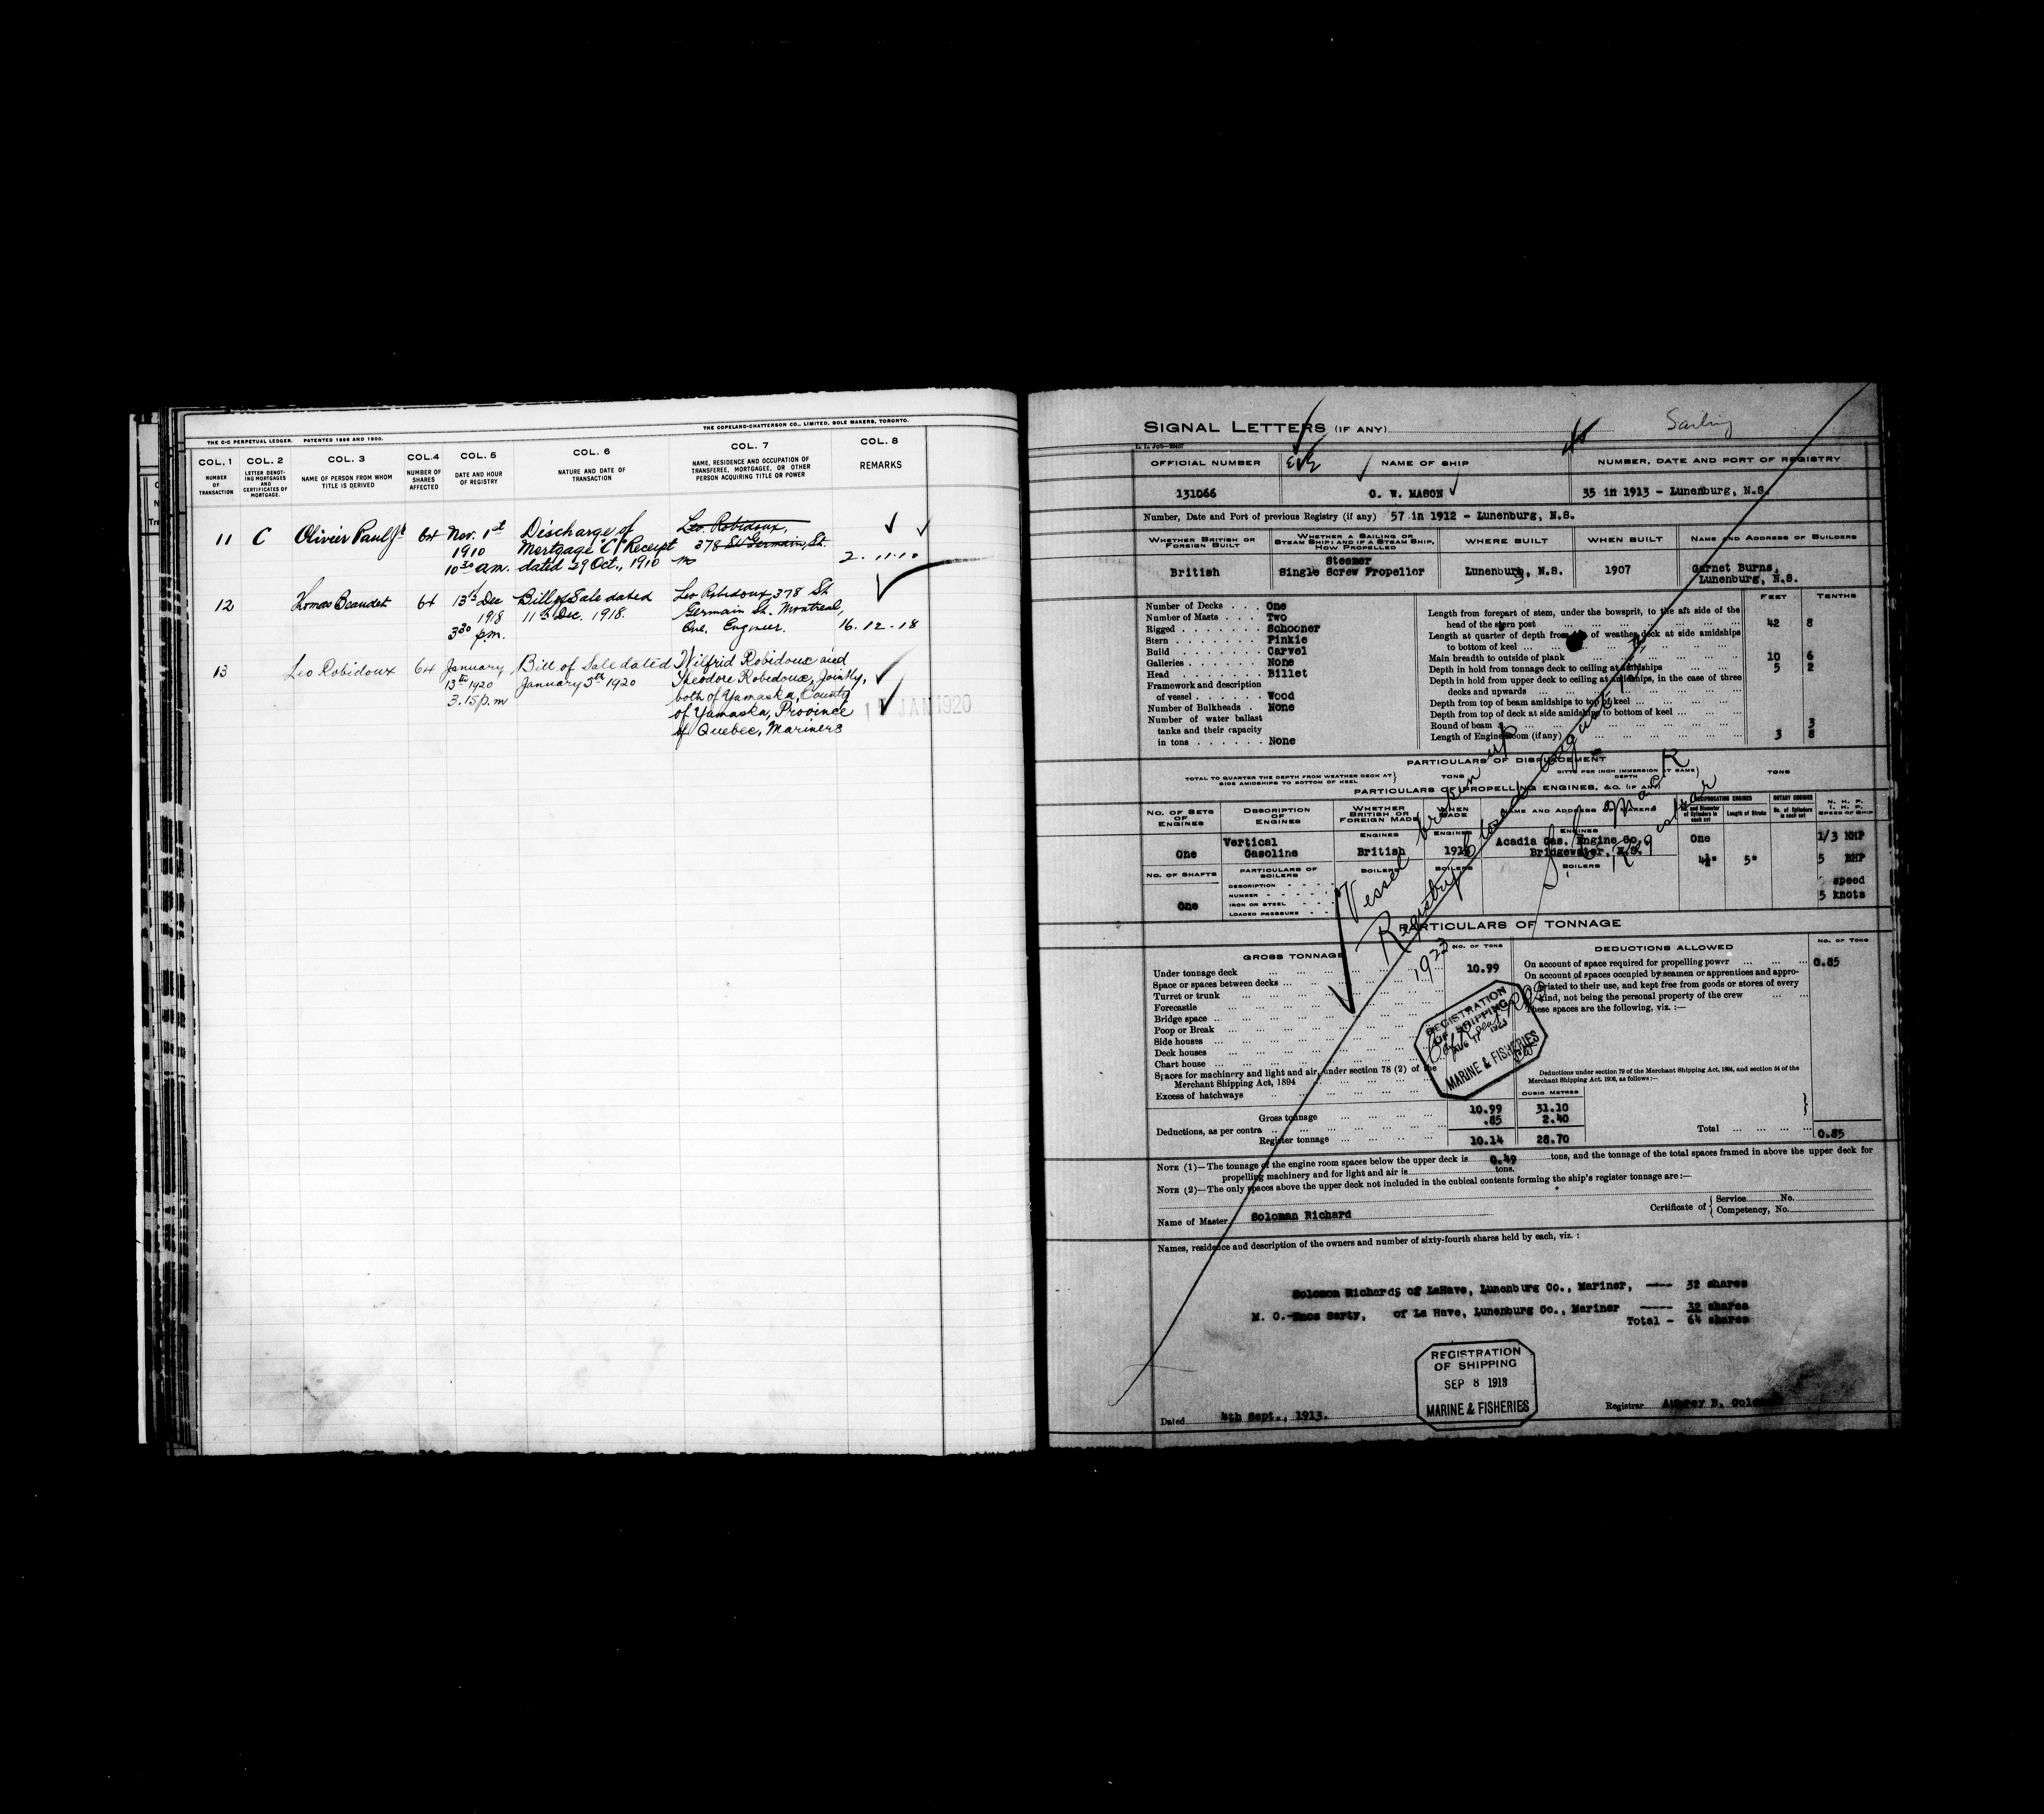 THE C-C PERPETUAL LEDGER. PATENTED 1896 AND 1900. THE COPELAND-CHATTERSON CO., LIMITED, SOLE MAKERS, TORONTO.
COL. 1 COL. 2 COL. 3 COL. 4 COL. 5 COL. 6 COL. 7 COL. 8
NUMBER OF TRANSACTION
LETTER DENOTING MORTGAGES AND CERTIFICATES OF MORTGAGE.
NAME OF PERSON FROM WHOM TITLE IS DERIVED
NUMBER OF SHARES AFFECTED
DATE AND HOUR OF REGISTRY
NATURE AND DATE OF TRANSACTION
NAME, RESIDENCE AND OCCUPATION OF TRANSFEREE, MORTGAGEE, OR OTHER PERSON ACQUIRING TITLE OR POWER
REMARKS
11 C Olivier Paul Jr 64 Nov. 1st Discharge of Leo Robidoux,
1910 Mortgage "C" Receipt 378 St Germain, St.
10 30 a.m. dated 29 Oct., 1910 2. 11. 10
12 Thomas Beaudet 64 13th Dec Bill of Sale dated Leo Robidoux, 378 St
1918 11th Dec. 1918. Germain St. Montreal,
3 30 p.m. Que. Engineer. 16. 12. 18
13 Leo Robidoux 64 January Bill of Sale dated Wilfrid Robidoux and
13th 1920 January 5th 1920 Theodore Robidoux, Jointly,
3.15 p.m both of Yamaska, County
of Yamaska, Province JAN 1920
of Quebec, Mariners
SIGNAL LETTERS (IF ANY) Sailing
OFFICIAL NUMBER NAME OF SHIP NUMBER, DATE AND PORT OF REGISTRY
131066 O. W. MASON 35 in 1913 - Lunenburg, N.S.
Number, Date and Port of previous Registry (if any) 57 in 1912 - Lunenburg, N.S.
WHETHER BRITISH OR FOREIGN BUILT
WHETHER A SAILING OR STEAM SHIP; AND IF A STEAM SHIP, HOW PROPELLED
WHERE BUILT WHEN BUILT NAME AND ADDRESS OF BUILDERS
British Steamer Single Screw Propellor Lunenburg, N.S. 1907 Garnet Burns, Lunenburg, N.S.
FEET TENTHS
Number of Decks One
Number of Masts Two
Rigged Schooner
Stern Pinkie
Build Carvel
Galleries None
Head Billet
Framework and description
of vessel Wood
Number of Bulkheads None
Number of water ballast
tanks and their capacity
in tons None
Length from forepart of stem, under the bowsprit, to the aft side of the
head of the stern post 42 8
Length at quarter of depth from top of weather deck at side amidships
to bottom of keel
Main breadth to outside of plank 10 6
Depth in hold from tonnage deck to ceiling at amidships 5 2
Depth in hold from upper deck to ceiling at amidships, in the case of three
decks and upwards
Depth from top of beam amidships to top of keel
Depth from top of deck at side amidships to bottom of keel
Round of beam 3
Length of Engine Room (if any) 3 8
PARTICULARS OF DISPLACEMENT
TOTAL TO QUARTER THE DEPTH FROM WEATHER DECK AT SIDE AMIDSHIPS TO BOTTOM OF KEEL TONS DITTO PER INCH IMMERSION AT SAME DEPTH TONS
PARTICULARS OF PROPELLING ENGINES, &C. (IF ANY)
NO. OF SETS OF ENGINES
DESCRIPTION OF ENGINES
WHETHER BRITISH OR FOREIGN MADE
WHEN MADE
NAME AND ADDRESS OF MAKERS
RECIPROCATING ENGINES
Length of Stroke
ROTARY ENGINES
No. of Cylinders in each set
N. H. P.
I. H. P.
SPEED OF SHIP
ENGINES ENGINES ENGINES
One Vertical Gasoline British Acadia Gas. Engine Co. Bridgewater, N.S. One 4½" 5" 1/3 NHP
5 BHP
speed
5 knots
NO. OF SHAFTS PARTICULARS OF BOILERS BOILERS BOILERS BOILERS
One
DESCRIPTION
NUMBER
IRON OR STEEL
LOADED PRESSURE
Vessel broken up
Registry closed August
1922
Registrar
PARTICULARS OF TONNAGE
GROSS TONNAGE NO. OF TONS DEDUCTIONS ALLOWED NO. OF TONS
Under tonnage deck 10.99
Space or spaces between decks
Turret or trunk
Forecastle
Bridge space
Poop or Break
Side houses
Deck houses
Chart house
Spaces for machinery and light and air, under section 78 (2) of the
Merchant Shipping Act, 1894
Excess of hatchways
On account of space required for propelling power 0.85
On account of spaces occupied by seamen or apprentices and appro-
priated to their use, and kept free from goods or stores of every
kind, not being the personal property of the crew
These spaces are the following, viz. :—
REGISTRATION
OF SHIPPING
MARINE & FISHERIES
Deductions under section 79 of the Merchant Shipping Act, 1894, and section 54 of the
Merchant Shipping Act, 1906, as follows:—
CUBIC METRES
Gross tonnage 10.99 31.10
Deductions, as per contra .85 2.40
Register tonnage 10.14 28.70
Total 0.85
NOTE (1)—The tonnage of the engine room spaces below the upper deck is 0.49 tons, and the tonnage of the total spaces framed in above the upper deck for
propelling machinery and for light and air is tons.
NOTE (2)—The only spaces above the upper deck not included in the cubical contents forming the ship's register tonnage are :—
Name of Master Soloman Richard
Certificate of { Service No.
Competency, No.
Names, residence and description of the owners and number of sixty-fourth shares held by each, viz. :
Solomon Richards of LaHave, Lunenburg Co., Mariner, ---- 32 shares
M. O.-Enos Sarty, of La Have, Lunenburg Co., Mariner ----- 32 shares
Total - 64 shares
REGISTRATION
OF SHIPPING
SEP 8 1913
MARINE & FISHERIES
Dated 4th Sept., 1913. Registrar